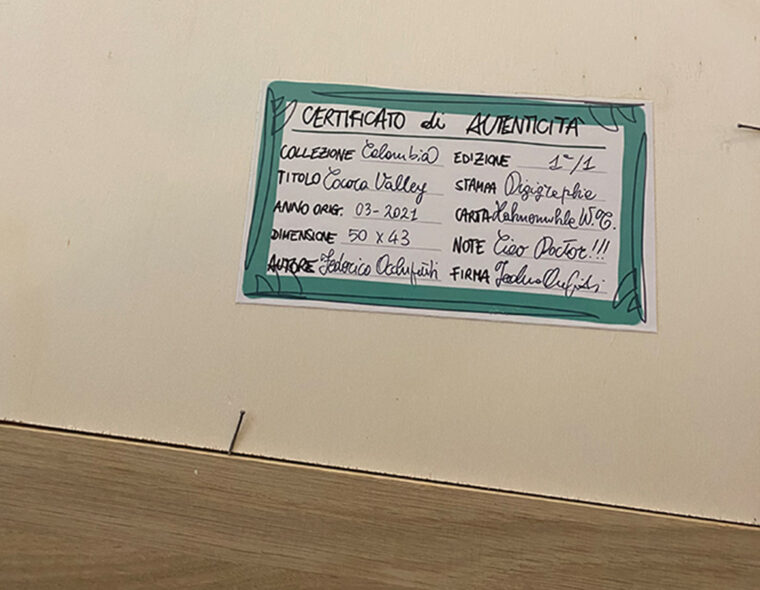 CERTIFICATO di AUTENTICITÀ
COLLEZIONE Colombia EDIZIONE 1ª/1
TITOLO Cocora Valley STAMPA Digigraphie
ANNO ORIG. 03-2021 CARTA Hahnemuhle W.C.
DIMENSIONE 50 X 43 NOTE Ciao Doctor!!!
AUTORE Federico FIRMA